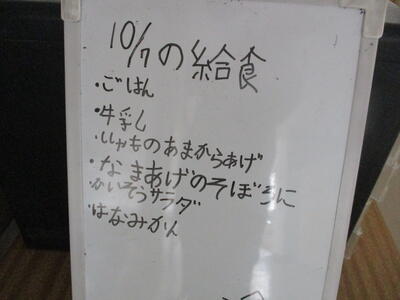 10/7の給食
・ごはん
・牛乳
・ししゃものあまからあげ
・なまあげのそぼろに
かいそうサラダ
はなみかん